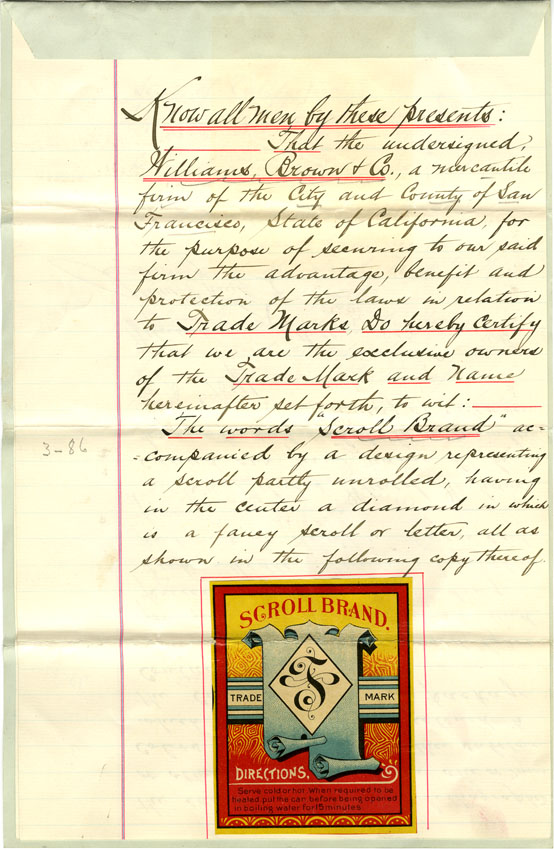 Know all men by these presents:
That the undersigned,
Williams, Brown & Co., a mercantile
firm of the City and County of San
Francisco, State of California, for
the purpose of securing to our said
firm the advantage, benefit and
protection of the laws in relation
to Trade Marks, Do hereby certify
that we are the exclusive owners
of the Trade Mark and Name
hereinafter set forth, to wit:
The words "Scroll Brand" ac=
3-86
=companied by a design representing
a scroll partly unrolled, having
in the center a diamond in which
is a fancy scroll or letter, all as
shown in the following copy thereof.
SCROLL BRAND.
TRADE MARK
DIRECTIONS.
Serve cold or hot. When required to be
heated, put the can, before being opened
in boiling water for 15 minutes